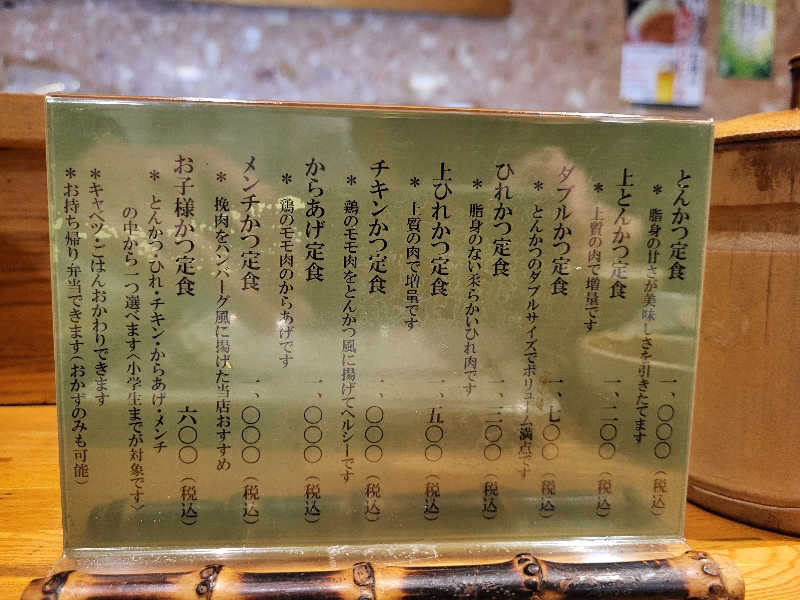 とんかつ定食 一、〇〇〇（税込）
＊脂身の甘さが美味しさを引きたてます
上とんかつ定食 一、二〇〇（税込）
＊上質の肉で増量です
ダブルかつ定食 一、七〇〇（税込）
＊とんかつのダブルサイズでボリューム満点です
ひれかつ定食 一、三〇〇（税込）
＊脂身のない柔らかいひれ肉です
上ひれかつ定食 一、五〇〇（税込）
＊上質の肉で増量です
チキンかつ定食 一、〇〇〇（税込）
＊鶏のモモ肉をとんかつ風に揚げてヘルシーです
からあげ定食 一、〇〇〇（税込）
＊鶏のモモ肉のからあげです
メンチかつ定食 一、〇〇〇（税込）
＊挽肉をハンバーグ風に揚げた当店おすすめ
お子様かつ定食 六〇〇（税込）
＊とんかつ・ひれ・チキン・からあげ・メンチ
の中から一つ選べます〈小学生までが対象です〉
＊キャベツ・ごはんおかわりできます
＊お持ち帰り弁当できます（おかずのみも可能）